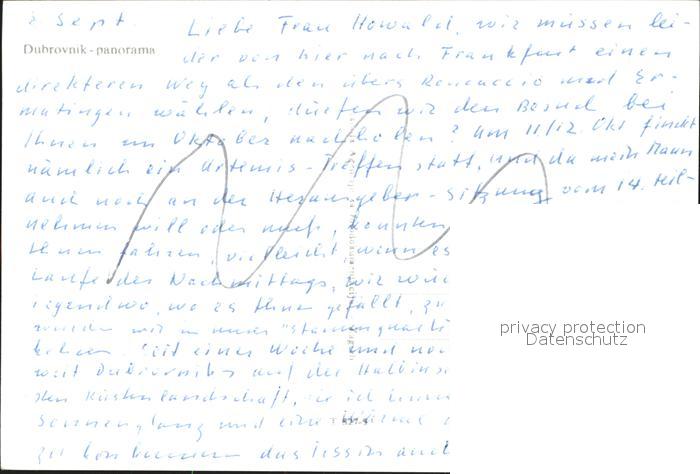 2. Sept. Liebe Frau Howald, wir müssen lei-
Dubrovnik - panorama
der von hier nach Frankfurt einen
direkteren Weg als den übers Roncaccio und Er-
matingen wählen, dürfen wir den Besuch bei
Ihnen im Oktober nachholen? Am 11/12. Okt findet
nämlich ein Artemis-Treffen statt, und da mein Mann
auch noch an der Herausgeber-Sitzung vom 14. teil-
nehmen will oder muß, könnten
Ihnen fahren, vielleicht wenn es
Laufe des Nachmittags, wir
irgendwo, wo es Ihnen gefällt, zu
wir in unser "Stammquarti
Seit einer Woche sind
weit Dubrovniks auf der Halbins
den Küstenlandschaft,
Sonnenglanz und eine Wärme
zu das Tessin auch
privacy protection
Datenschutz